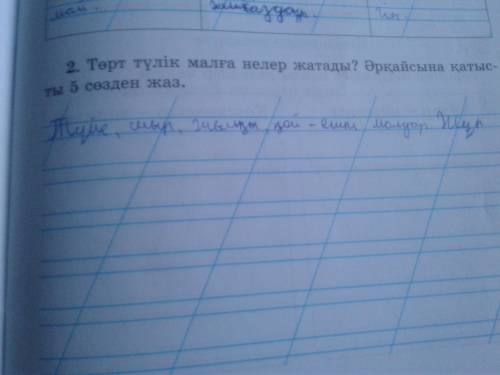 мал.
2. Төрт түлік малға нелер жатады? Әрқайсына қатыс-
ты 5 сөзден жаз.
Түйе, сиыр, жылқы, қой - ешкі малдар. Жүр